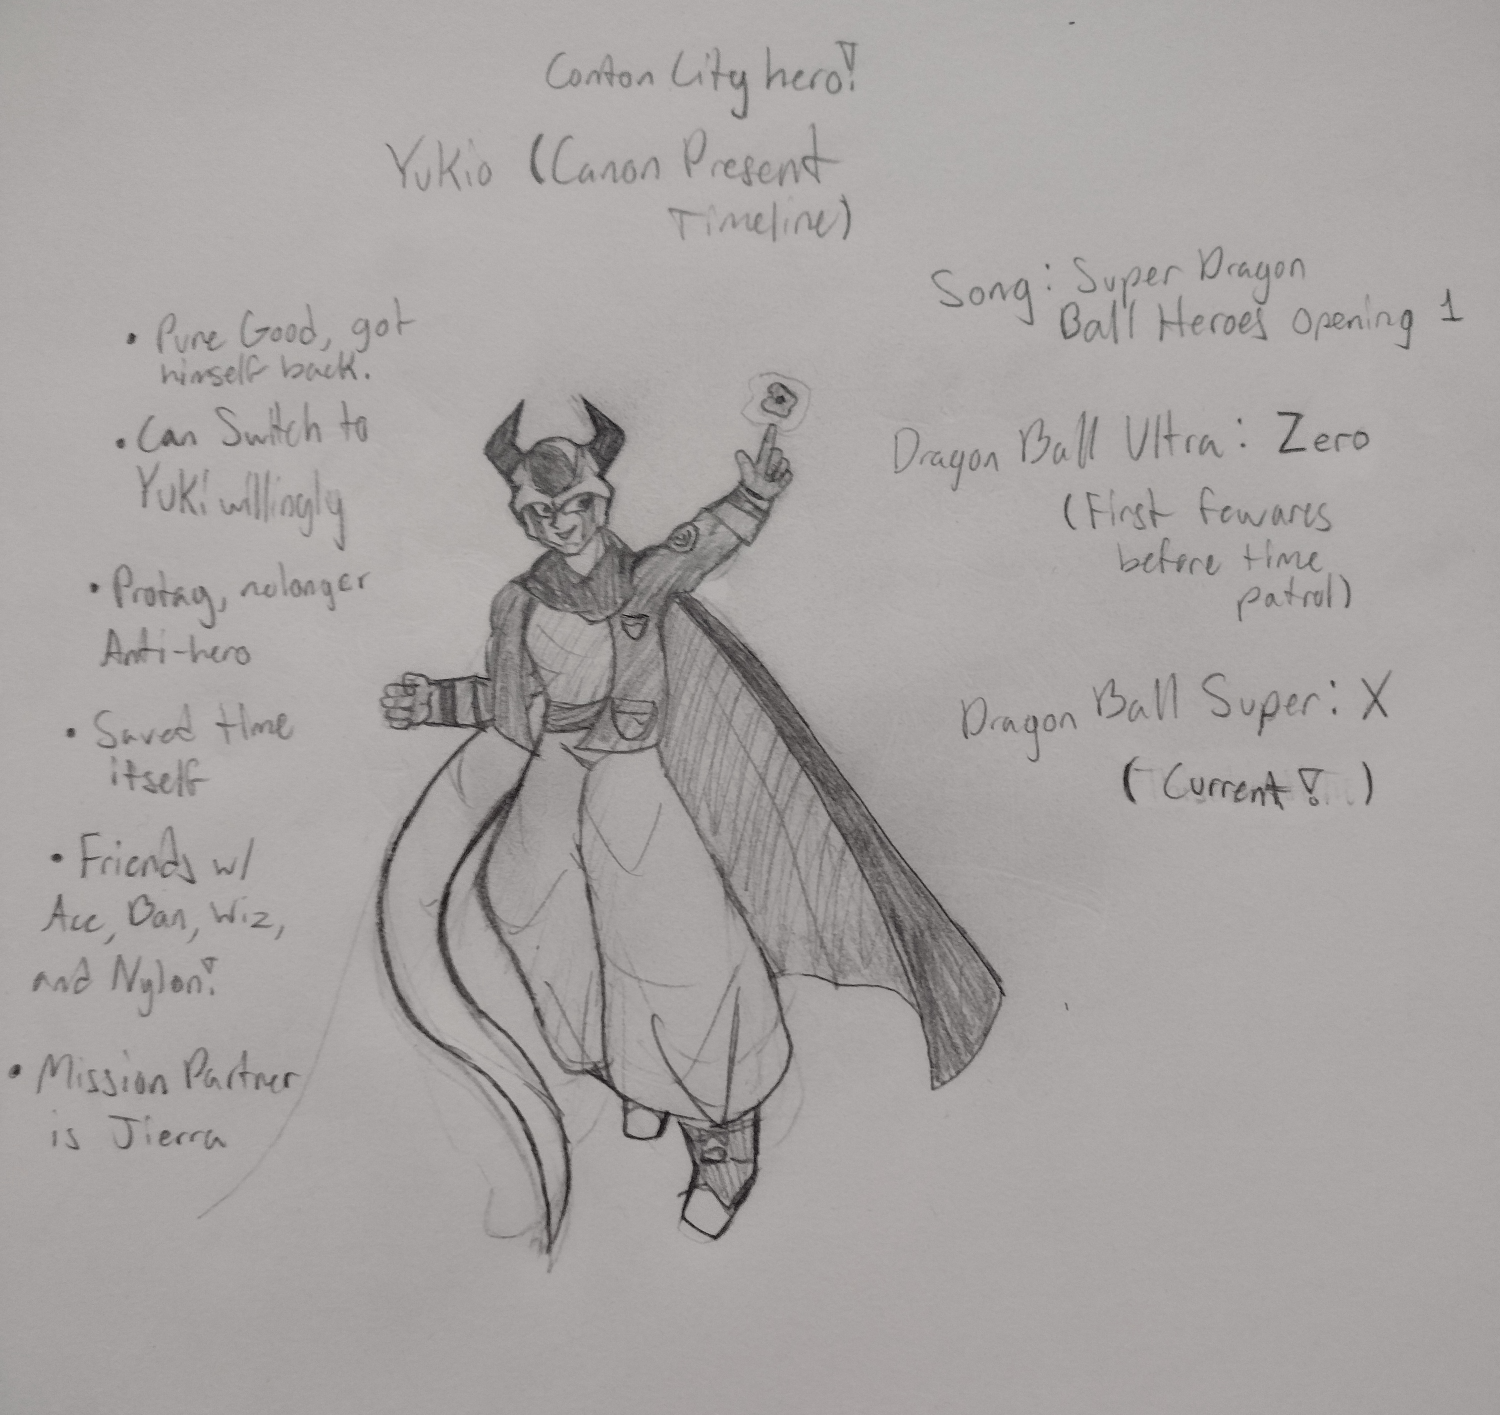 Conton City hero!
Yukio (Canon Present
Timeline)
• Pure Good, got
himself back.
• Can Switch to
Yuki willingly
• Protag, nolonger
Anti-hero
• Saved time
itself
• Friends w/
Ace, Dan, Wiz,
and Nylon!
• Mission Partner
is Jierra
Song: Super Dragon
Ball Heroes opening 1
Dragon Ball Ultra: Zero
(First fewarcs
before time
patrol)
Dragon Ball Super: X
(Current! )